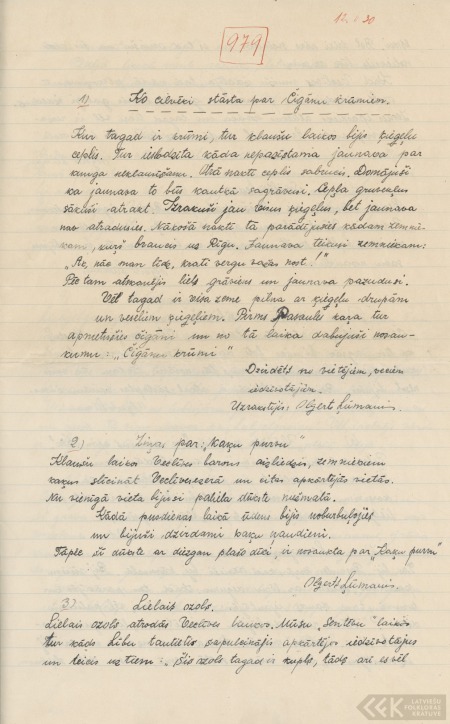 979
1) Ko cilvēki stāsta par Čigānu krūmiem.
Kur tagad ir krūmi, tur klaušu laikos bijis ķieģeļu
ceplis. Tur iesodzīta kāda nepazīstama jaunava par
kunga neklausīšanu. Otrā naktī ceplis sabrucis. Domājuši
ka jaunava to būs kautkā sagrāvusi. Cepļa gruvekļus
sākuši atrakt. Izrakuši jau visus ķieģeļus, bet jaunava
nav atradusies. Nākošā naktī tā parādījusies kādam zemnie-
kam, kurš braucis uz Rīgu. Jaunava teikusi zemniekam:
"Ac, nāc man līdz, krati vergu važas nost!"
Pēc tam atskanējis liels grāviens un jaunava pazudusi.
Vēl tagad ir visa zeme pilna ar ķieģeļu drupām
un veseliem ķieģeļiem. Pirms Pasaules kaŗa tur
apmetušies čigāni un no tā laika dabujuši nosau-
kumu: "Čigānu krūmi"
Dzirdēts no vietējiem, veciem
iedzīvotājiem.
Uzrakstījis: Olģert Ļūmanis.
2) Ziņas par: "Kaķu purvu"
Klaušu laikos Vecsieves barons aizliedzis, zemniekiem
kaķus slīcināt un citās apkārtējās vietās.
Kā vienīgā vieta bijusi palikta dūkste nežmatā.
Kādā pusdienas laikā ūdens bijis noburbuļojis
un bijuši dzirdami kaķu ņaudieni.
Tāpēc šī dūkste ar diezgan plašo dīķi, ir nosaukta par "Kaķu purvu"
Olģert Ļūmanis.
3) Lielais ozols.
Lielais ozols atrodas Vecsieves laukos. Mūsu "Sentēvu" laikos
tur kāds Lību tautietis sapulcinājis apkārtējos iedzīvotājus
un teicis uz tiem: "Šis ozols tagad ir kupls, tāds arī es vēl
LATVIEŠU
FOLKLORAS
KRĀTUVE